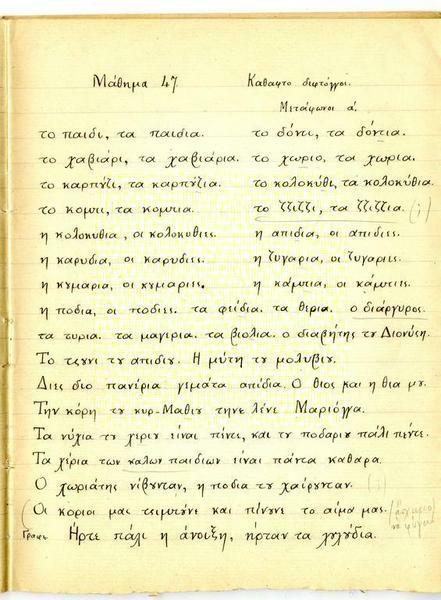 Μάθημα 47. Καθαφτο διφτόγγοι.
Μετάφωνοι α΄.
το παιδι, τα παιδια. το δόντι, τα δόντια.
το χαβιάρι, τα χαβιάρια. το χωριο, τα χωρια.
το καρπύζι, τα καρπύζια. το κολοκύθι, τα κολοκύθια.
το κομπι, τα κομπια. το τζιτζι, τα τζιτζια. (;)
η κολοκυθια, οι κολοκυθιες. η απιδια, οι απιδιες.
η καρυδια, οι καρυδιες. η ζυγαρια, οι ζυγαριες.
η κυμαρια, οι κυμαριες. η κάμπια, οι κάμπιες.
η ποδια, οι ποδιες. τα φίδια. τα θερια. ο διάργυρος.
τα τυρια. τα μαγερια. τα βιολια. ο διαβήτης τυ Διονύση.
Το τσυνι τυ απιδιυ. Η μύτη τυ μολυβιυ.
Διες δεο πανέρια γιματα απίδια. Ο θιος και η θια μυ.
Την κόρη τυ κυρ-Μαθιυ τηνε λένε Μαριόγγα.
Τα νύχια τυ χεριυ είναι πέντε, και τυ ποδαριυ πάλι πέντε.
Τα χέρια των καλων παιδιων είναι πάντα καθαρα.
Ο χωριάτης νίβυνταν, η ποδια τυ χαίρυνταν. (;)
(Οι κοριοι μας τσιμπυνε και πίνυνε το αίμα μας.
Ηρτε πάλι η άνοιξη, ήρταν τα λυλύδια.